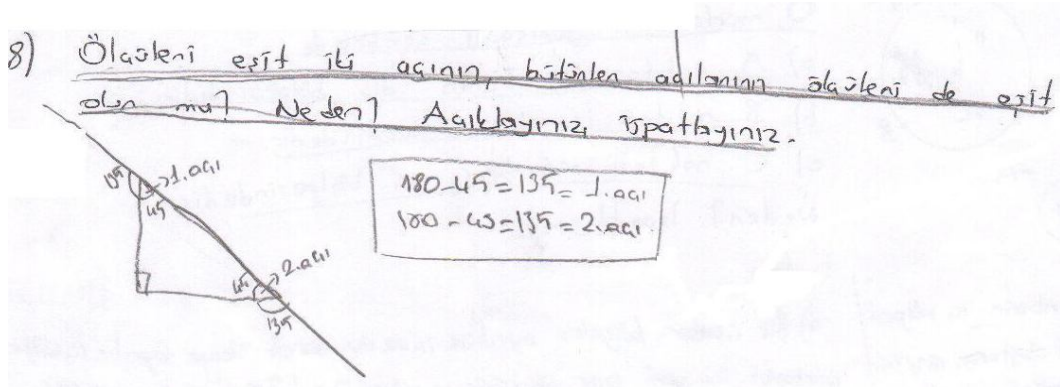 8) Ölçüleri eşit iki açının, bütünler açılarının ölçüleri de eşit
olur mu? Neden? Açıklayınız, ispatlayınız.
135 → 1. açı
45
180 - 45 = 135 = 1. açı
180 - 45 = 135 = 2. açı
45 → 2. açı
135